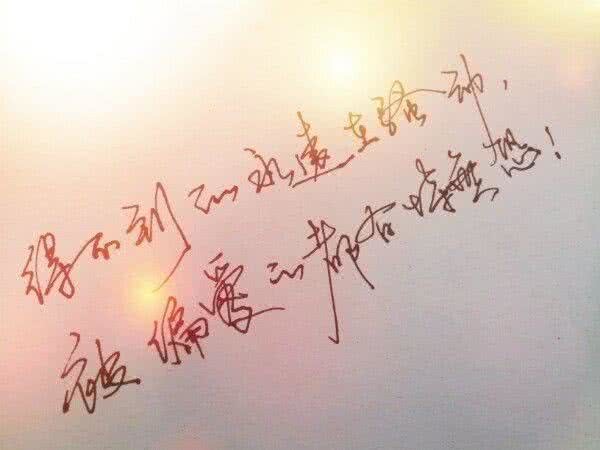 得不到的永遠在骚动，
被偏愛的都有恃無恐！